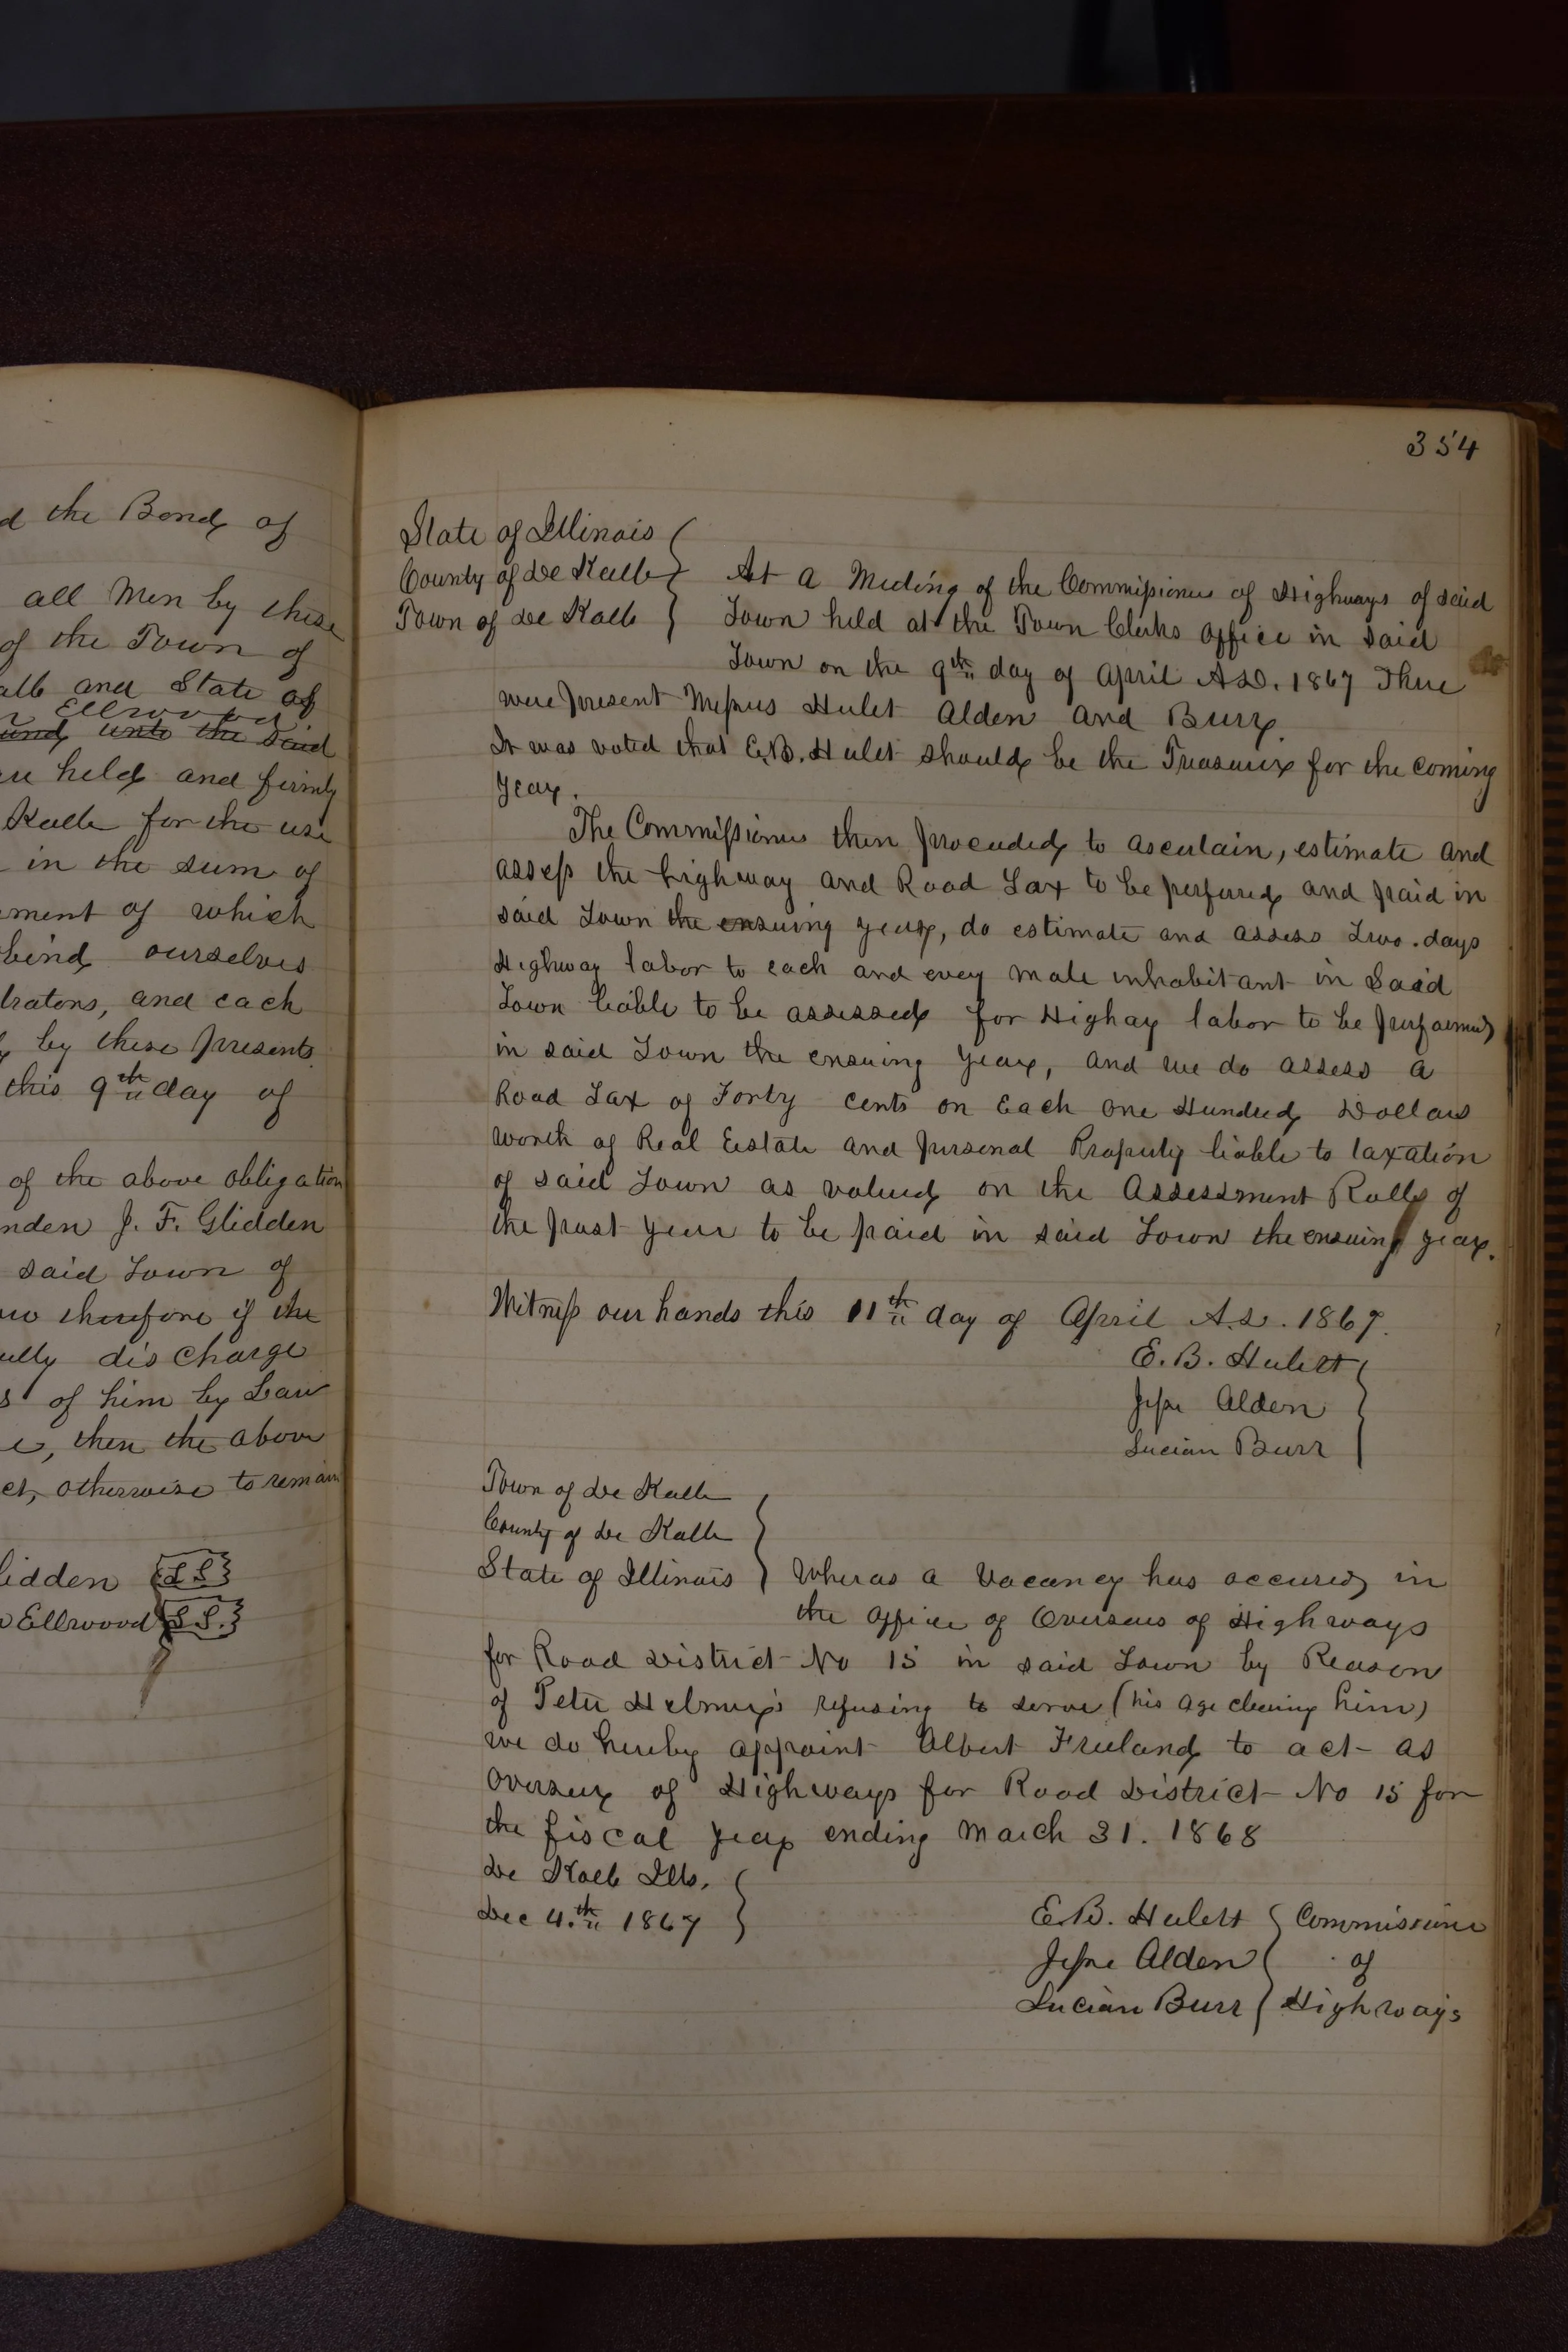 d the Bond of
all Men by these
of the Town of
alb and State of
Ellwood
und unto the said
held and firmly
Kalb for the use
in the sum of
ment of which
bind ourselves
trators, and each
by these presents
this 9th day of
of the above obligation
nden J. F. Glidden
said Town of
therefore if the
ully discharge
s of him by Law
e, then the above
ct, otherwise to remain
lidden L S
Ellwood L S.
354
State of Illinois
County of De Kalb
Town of De Kalb
At a Meeting of the Commissioners of Highways of said
Town held at the Town Clerks office in said
Town on the 9th day of April A.D. 1867 There
were present Messrs Hulet Alden and Burr.
It was voted that E.B. Hulet should be the Treasurer for the coming
Year.
The Commissioners then proceeded to ascertain, estimate and
assess the highway and Road Tax to be perfured and paid in
said Town the ensuing year, do estimate and assess Two days
Highway labor to each and every male inhabitant in Said
Town liable to be assessed for Highay labor to be performed
in said Town the ensuing year, and we do assess a
Road Tax of Forty cents on Each One Hundred Dollars
worth of Real Eestate and personal Property liable to taxation
of said Town as valued on the Assessment Rolls of
the past year to be paid in said Town the ensuing year.
Witness our hands this 11th day of April A.D. 1867.
E. B. Hulett
Jesse Alden
Lucian Burr
Town of De Kalb
County of De Kalb
State of Illinois
Wheras a Vacancy has occured in
the office of Overseers of Highways
for Road District No 15 in said Town by Reason
of Peter Helmer's refusing to serve (his age clearing him)
we do hereby appoint Albert Freeland to act as
Overseer of Highways for Road District No 15 for
the fiscal year ending March 31. 1868
De Kalb Ills.
Dec 4.th 1867
E.B. Hulett
Jesse Alden
Lucian Burr
Commissioners
of
Highways